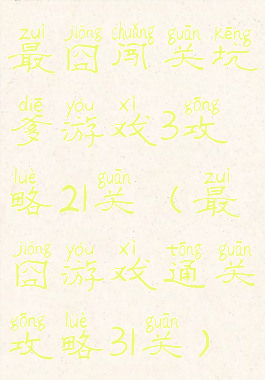 zuì jiǒng chuǎng guān kēng
最囧闯关坑
diē yóu xì gōng
爹游戏3攻
lüè guān zuì
略21关(最
jiǒng yóu xì tōng guān
囧游戏通关
gōng lüè guān
攻略31关)